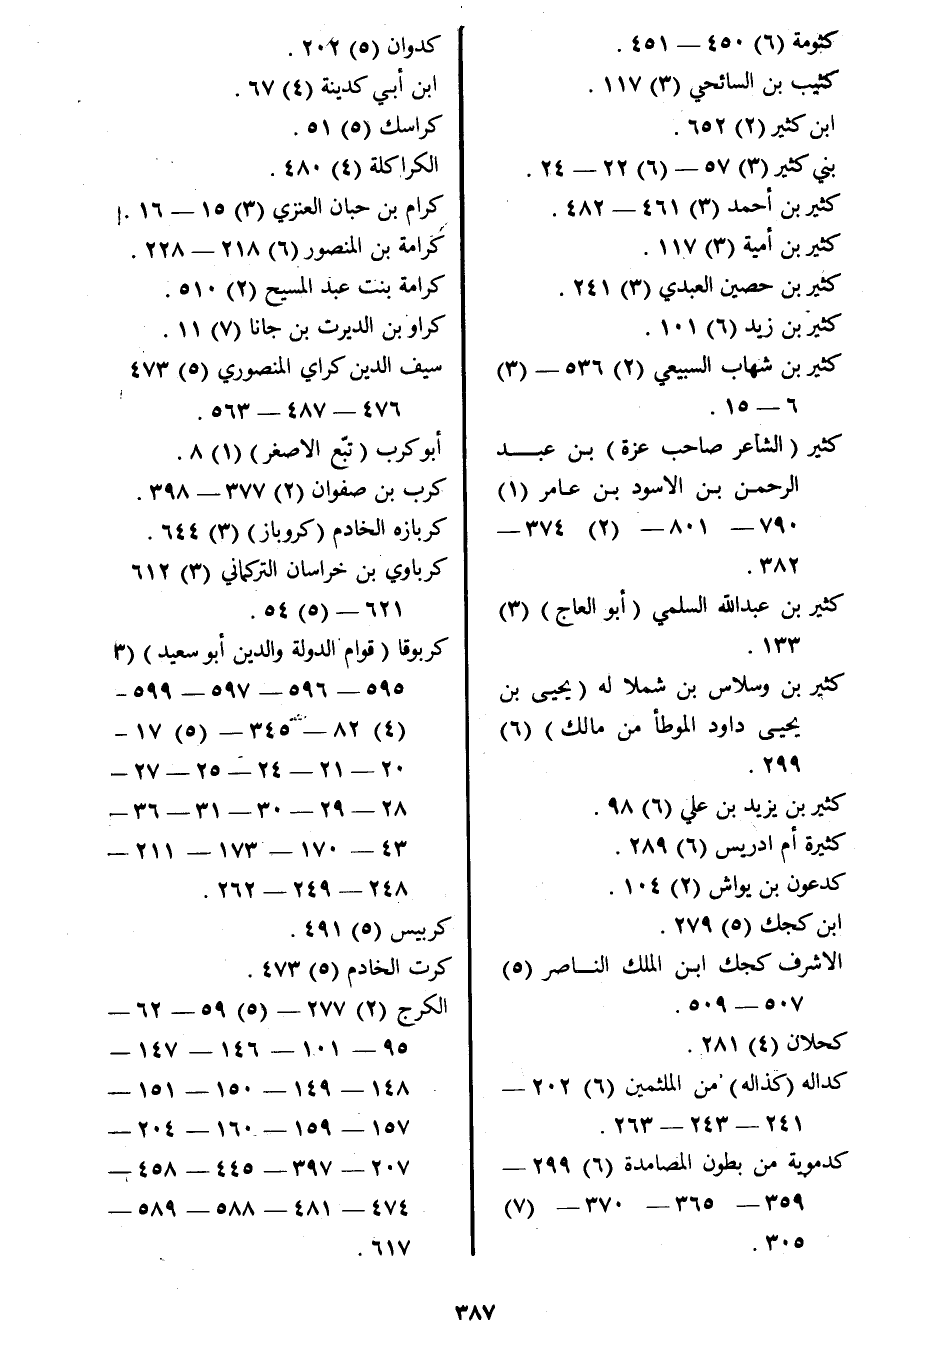 كثومة (٦) ٤٥٠ — ٤٥١ .
كثيب بن السائحي (٣) ١١٧ .
ابن كثير (٢) ٦٥٢ .
بني كثير (٣) ٥٧ — (٦) ٢٢ — ٢٤ .
كثير بن أحمد (٣) ٤٦١ — ٤٨٢ .
كثير بن أمية (٣) ١١٧ .
كثير بن حصين العبدي (٣) ٢٤١ .
كثير بن زيد (٦) ١٠١ .
كثير بن شهاب السبيعي (٢) ٥٣٦ — (٣)
٦ — ١٥ .
كثير ( الشاعر صاحب عزة ) بن عبد
الرحمن بن الاسود بن عامر (١)
٧٩٠ — ٨٠١ — (٢) ٣٧٤ —
٣٨٢ .
كثير بن عبدالله السلمي ( أبو العاج ) (٣)
١٣٣ .
كثير بن وسلاس بن شملا له ( يحيى بن
يحيى داود الموطأ من مالك ) (٦)
٢٩٩ .
كثير بن يزيد بن علي (٦) ٩٨ .
كثيرة أم ادريس (٦) ٢٨٩ .
كدعون بن يواش (٢) ١٠٤ .
ابن كجك (٥) ٢٧٩ .
الاشرف كجك ابن الملك الناصر (٥)
٥٠٧ — ٥٠٩ .
كحلان (٤) ٢٨١ .
كداله (كذاله) من الملثمين (٦) ٢٠٢ —
٢٤١ — ٢٤٣ — ٢٦٣ .
كدموية من بطون المصامدة (٦) ٢٩٩ —
٣٥٩ — ٣٦٥ — ٣٧٠ — (٧)
٣٠٥ .
كدوان (٥) ٢٠٢ .
ابن أبي كدينة (٤) ٦٧ .
كراسك (٥) ٥١ .
الكراكلة (٤) ٤٨٠ .
كرام بن حبان العنزي (٣) ١٥ — ١٦ .
كرامة بن المنصور (٦) ٢١٨ — ٢٢٨ .
كرامة بنت عبد المسيح (٢) ٥١٠ .
كراو بن الديرت بن جانا (٧) ١١ .
سيف الدين كراي المنصوري (٥) ٤٧٣
٤٧٦ — ٤٨٧ — ٥٦٣ .
أبو كرب ( تبّع الاصغر ) (١) ٨ .
كرب بن صفوان (٢) ٣٧٧ — ٣٩٨ .
كربازه الخادم (كروباز) (٣) ٦٤٤ .
كرباوي بن خراسان التركماني (٣) ٦١٢
٦٢١ — (٥) ٥٤ .
كربوقا ( قوام الدولة والدين أبو سعيد ) (٣
٥٩٥ — ٥٩٦ — ٥٩٧ — ٥٩٩ -
(٤) ٨٢ — ٣٤٥ — (٥) ١٧ -
٢٠ — ٢١ — ٢٤ — ٢٥ — ٢٧ —
٢٨ — ٢٩ — ٣٠ — ٣١ — ٣٦ —
٤٣ — ١٧٠ — ١٧٣ — ٢١١ —
٢٤٨ — ٢٤٩ — ٢٦٢ .
كربيس (٥) ٤٩١ .
كرت الخادم (٥) ٤٧٣ .
الكرج (٢) ٢٧٧ — (٥) ٥٩ — ٦٢ —
٩٥ — ١٠١ — ١٤٦ — ١٤٧ —
١٤٨ — ١٤٩ — ١٥٠ — ١٥١ —
١٥٧ — ١٥٩ — ١٦٠ — ٢٠٤ —
٢٠٧ — ٣٩٧ — ٤٤٥ — ٤٥٨ —
٤٧٤ — ٤٨١ — ٥٨٨ — ٥٨٩ —
٦١٧ .
٣٨٧